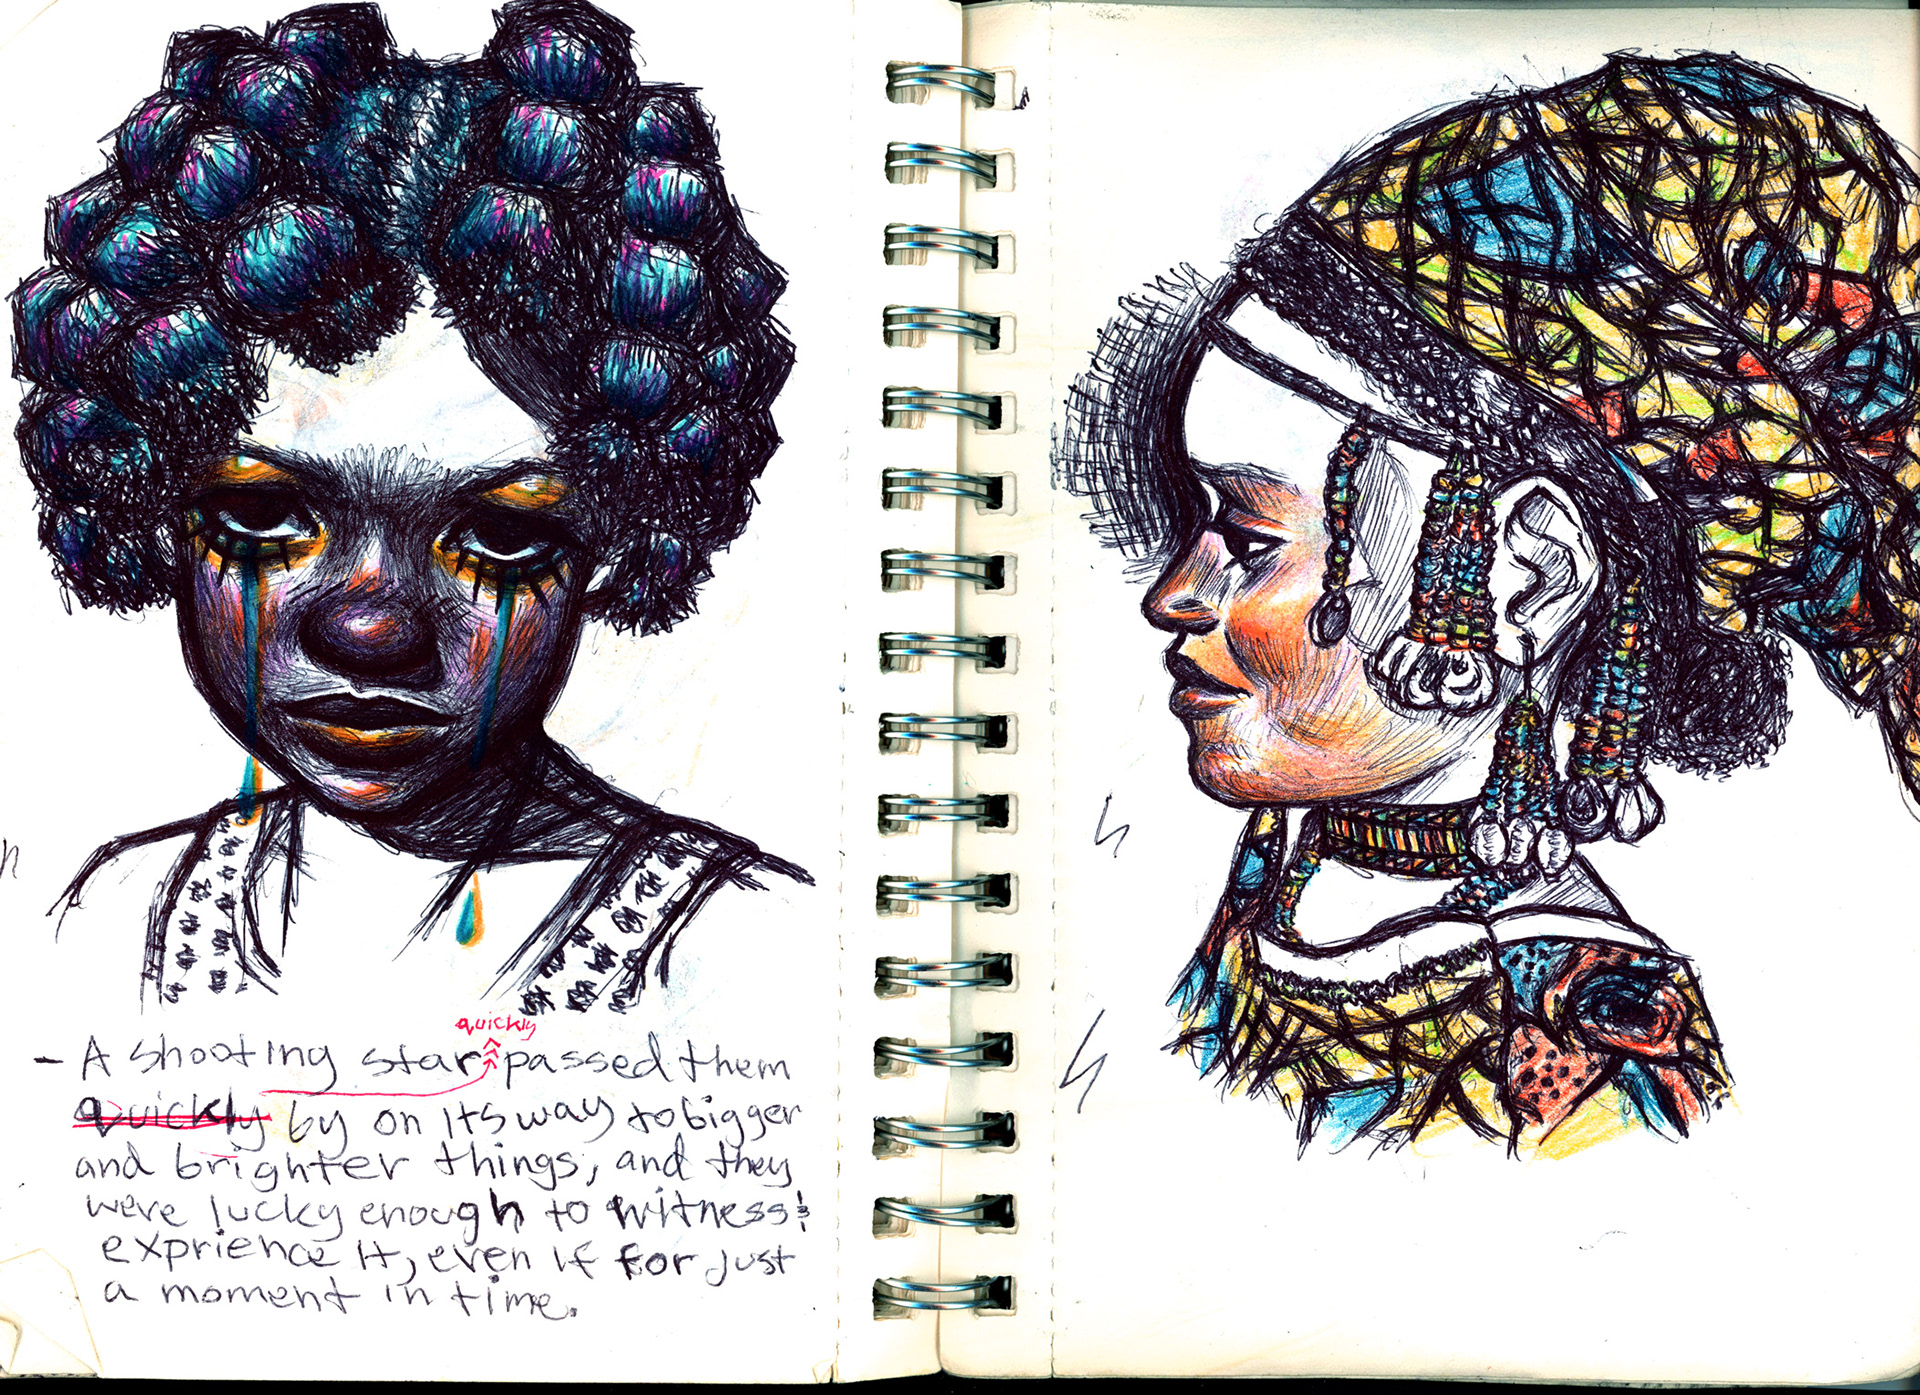 quickly
- A shooting star passed them
quickly by on its way to bigger
and brighter things, and they
were lucky enough to witness &
exprience it, even if for just
a moment in time.